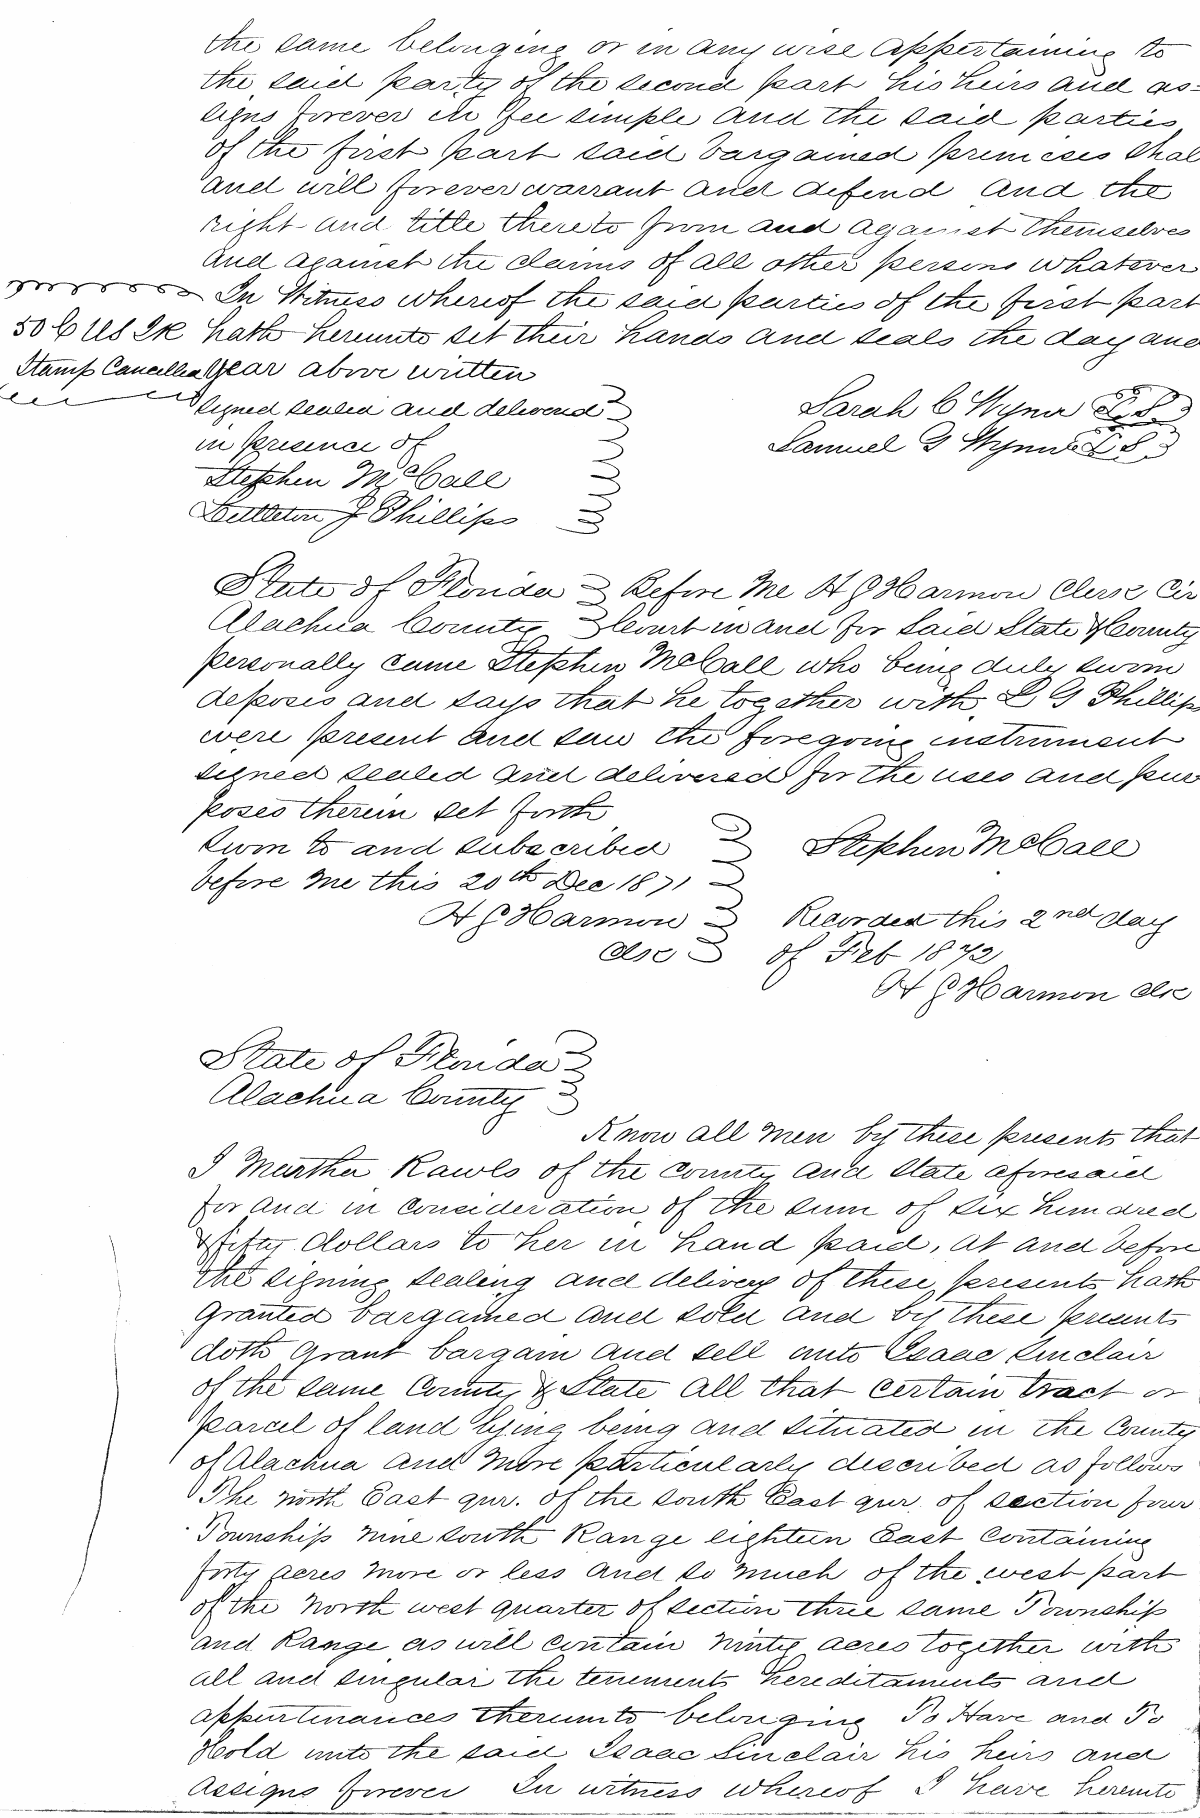 the same belonging or in any wise appertaining to
the said party of the second part his heirs and as=
signs forever in fee simple and the said parties
of the first part said bargained premises shal
and will forever warrant and defend and the
right and title thereto from and against themselves
and against the claims of all other persons whatever
In Witness whereof the said parties of the first part
50 C US IR hath hereunto set their hands and seals the day and
Stamp Cancelled year above written
signed sealed and delivered
in presence of
Stephen McCall
Littleton J Phillips
Sarah C Wynn L.S.
Samuel G Wynn L S
State of Florida Before Me H G Harmon Clerk Cir
Alachua County Court in and for said State & County
personally came Stephen McCall who being duly sworn
deposes and says that he together with L G Phillips
were present and saw the foregoing instrument
signed sealed and delivered for the uses and pur
poses therein set forth
Sworn to and subscribed Stephen McCall
before me this 20th Dec 1871
H G Harmon Recorded this 2nd day
Clk of Feb 1872
H G Harmon Clk
State of Florida
Alachua County
Know all men by these presents that
I Martha Rawls of the county and State aforesaid
for and in consideration of the sum of six hundred
& fifty dollars to her in hand paid, at and before
the signing sealing and delivery of these presents hath
granted bargained and sold and by these presents
doth grant bargain and sell unto Isaac Sinclair
of the same County & State all that certain tract or
parcel of land lying being and situated in the County
of Alachua and more particularly described as follows
The north East qur. of the south East qur. of section four
Township nine south Range eighteen East containing
forty acres more or less and so much of the west part
of the North west quarter of section three same Township
and Range as will contain ninty acres together with
all and singular the tenements hereditaments and
appurtinances thereunto belonging To Have and To
Hold unto the said Isaac Sinclair his heirs and
assigns forever In witness whereof I have hereunto